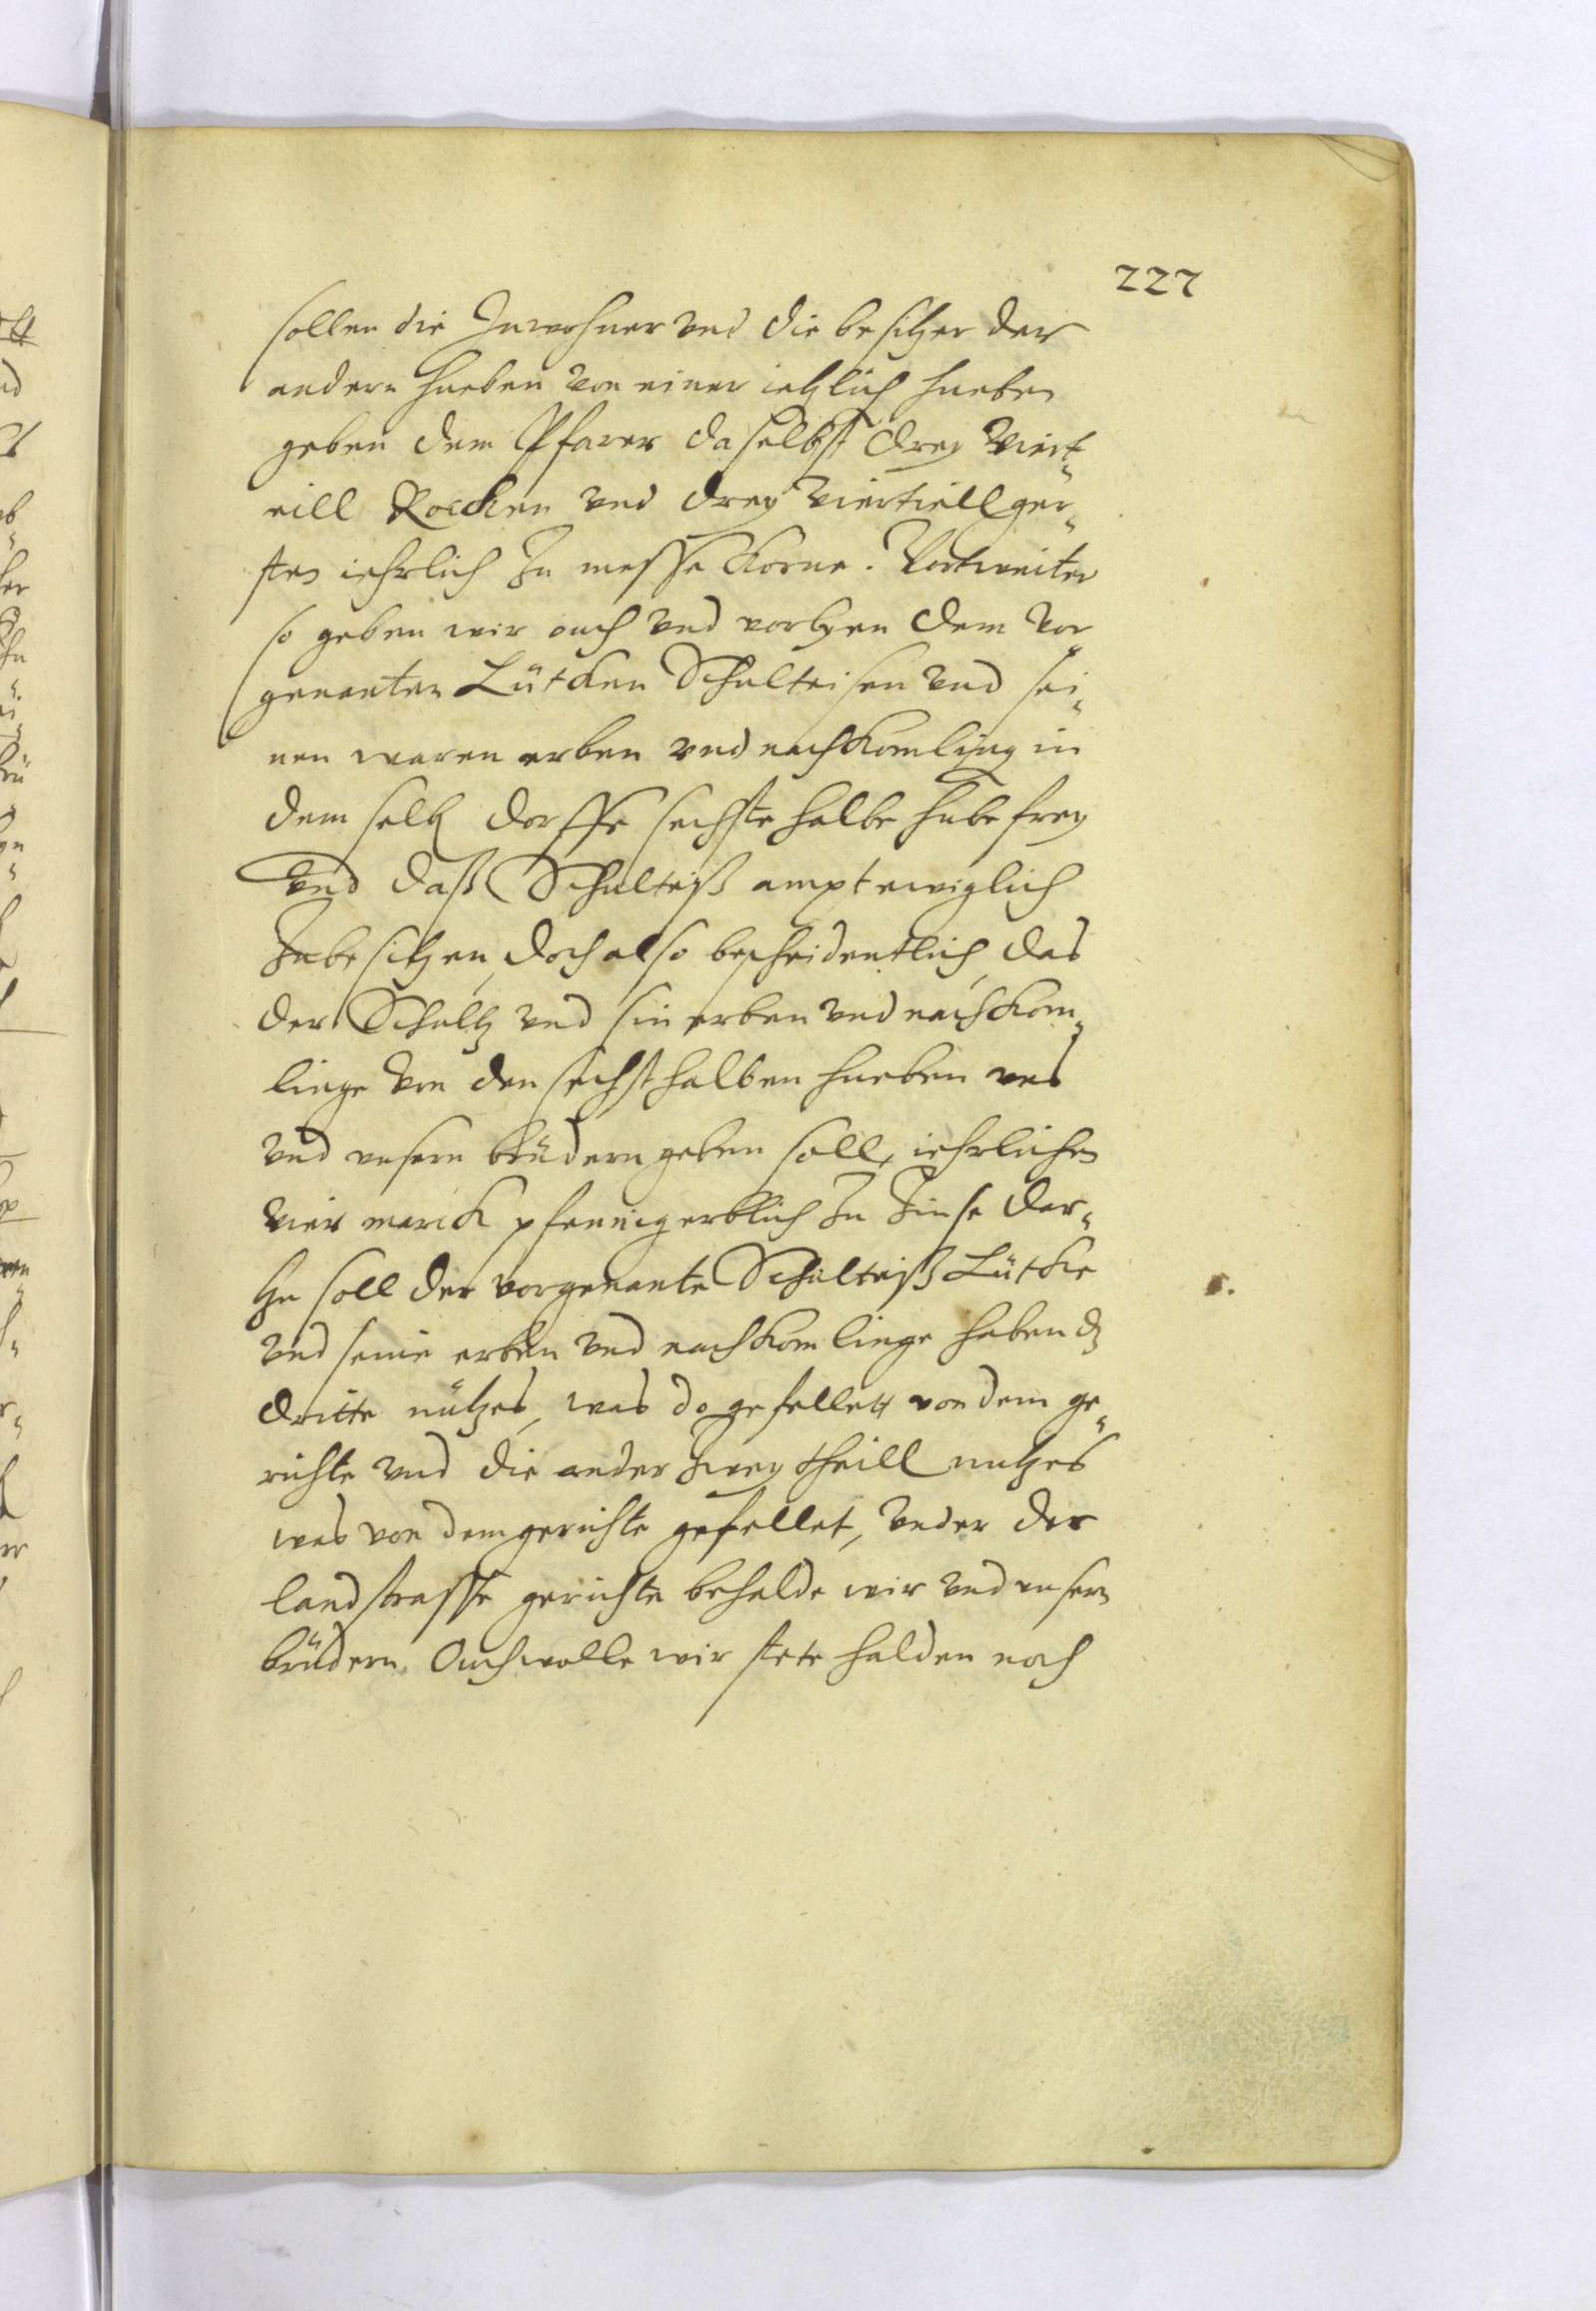 227
sollen die Inwohner vnd die besitzer der
andern hueben von einer ietzlich hueben
geben dem Pfarer daselbst drey viert¬
eill Rocken vnd drey viertiell ger¬
sten iehrlich zu messe korne. Vortweiter
so geben wir auch vnd vorlyen dem vor
genanten Lütcken Schulteisen vnd sei¬
nen waren erben vnd nachkomling in
dem selb dorffe sechste halbe hube frey
vnd daß Schulteiß ampt ewiglich
zubesitzen, doch also bescheidentlich das
der Schultz vnd sin erben vnd nachkom¬
linge von den sechsthalben hueben vns
vnd vnsern brüdern geben soll, iehrlichen
vier marck pfennig erblich zu zinse dar¬
zu soll der vorgenante Schulteiß Lütcke
vnd seine erben vnd nachkomlinge haben dz
dritte nützes, was do gefellett von dem ge¬
richte vnd die ander zwey theill nutzes
was von dem gerichte gefellet, vnder der
landstrasse gerichte behalde wir vnd vnsern
brüdern. Auch wolle wir stete halden noch